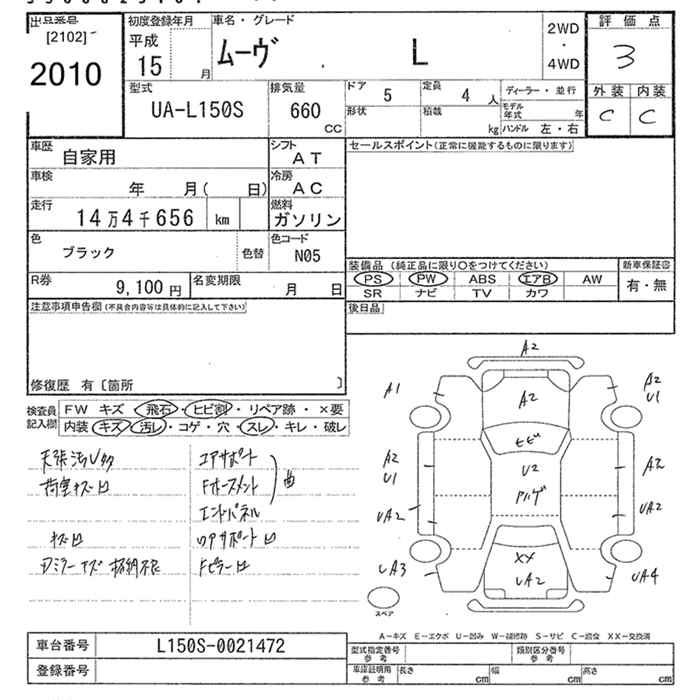 出品番号
[2102]
2010
初度登録年月
平成
15 月
車名・グレード
ムーヴ L
2WD
・
4WD
評価点
3
外装 内装
C C
型式
UA-L150S
排気量
660
CC
ドア 5
定員 4 人
形状
積載 kg
ディーラー・並行
モデル年式 年
ハンドル 左・右
車歴 自家用
シフト AT
車検 年 月( 日)
冷房 AC
走行 14万4千656 km
燃料 ガソリン
色 ブラック 色替
色コード N05
R券 9,100円
名変期限 月 日
セールスポイント(正常に機能するものに限ります)
装備品(純正品に限り○をつけてください)
新車保証書
PS PW ABS エアB AW
SR ナビ TV カワ
有・無
後日品
注意事項申告欄(不具合内容等は具体的に記入して下さい)
修復歴 有〔箇所 〕
検査員記入欄
FW キズ・飛石・ヒビ割・リペア跡・×要
内装 キズ・汚レ・コゲ・穴・スレ・キレ・破レ
エアサポート
エンドパネル
曲
Fピラー凹
A2
A1
A2
A2
U1
ヒビ
A2
U1
U2
A2
UA2
UA2
XX
UA2
UA3
UA4
スペア
A-キズ E-エクボ U-凹み W-補修跡 S-サビ C-腐食 XX-交換済
車台番号 L150S-0021472
登録番号
型式指定番号
参考
類別区分番号
参考
車庫証明用
参考
長さ cm
幅 cm
高さ cm